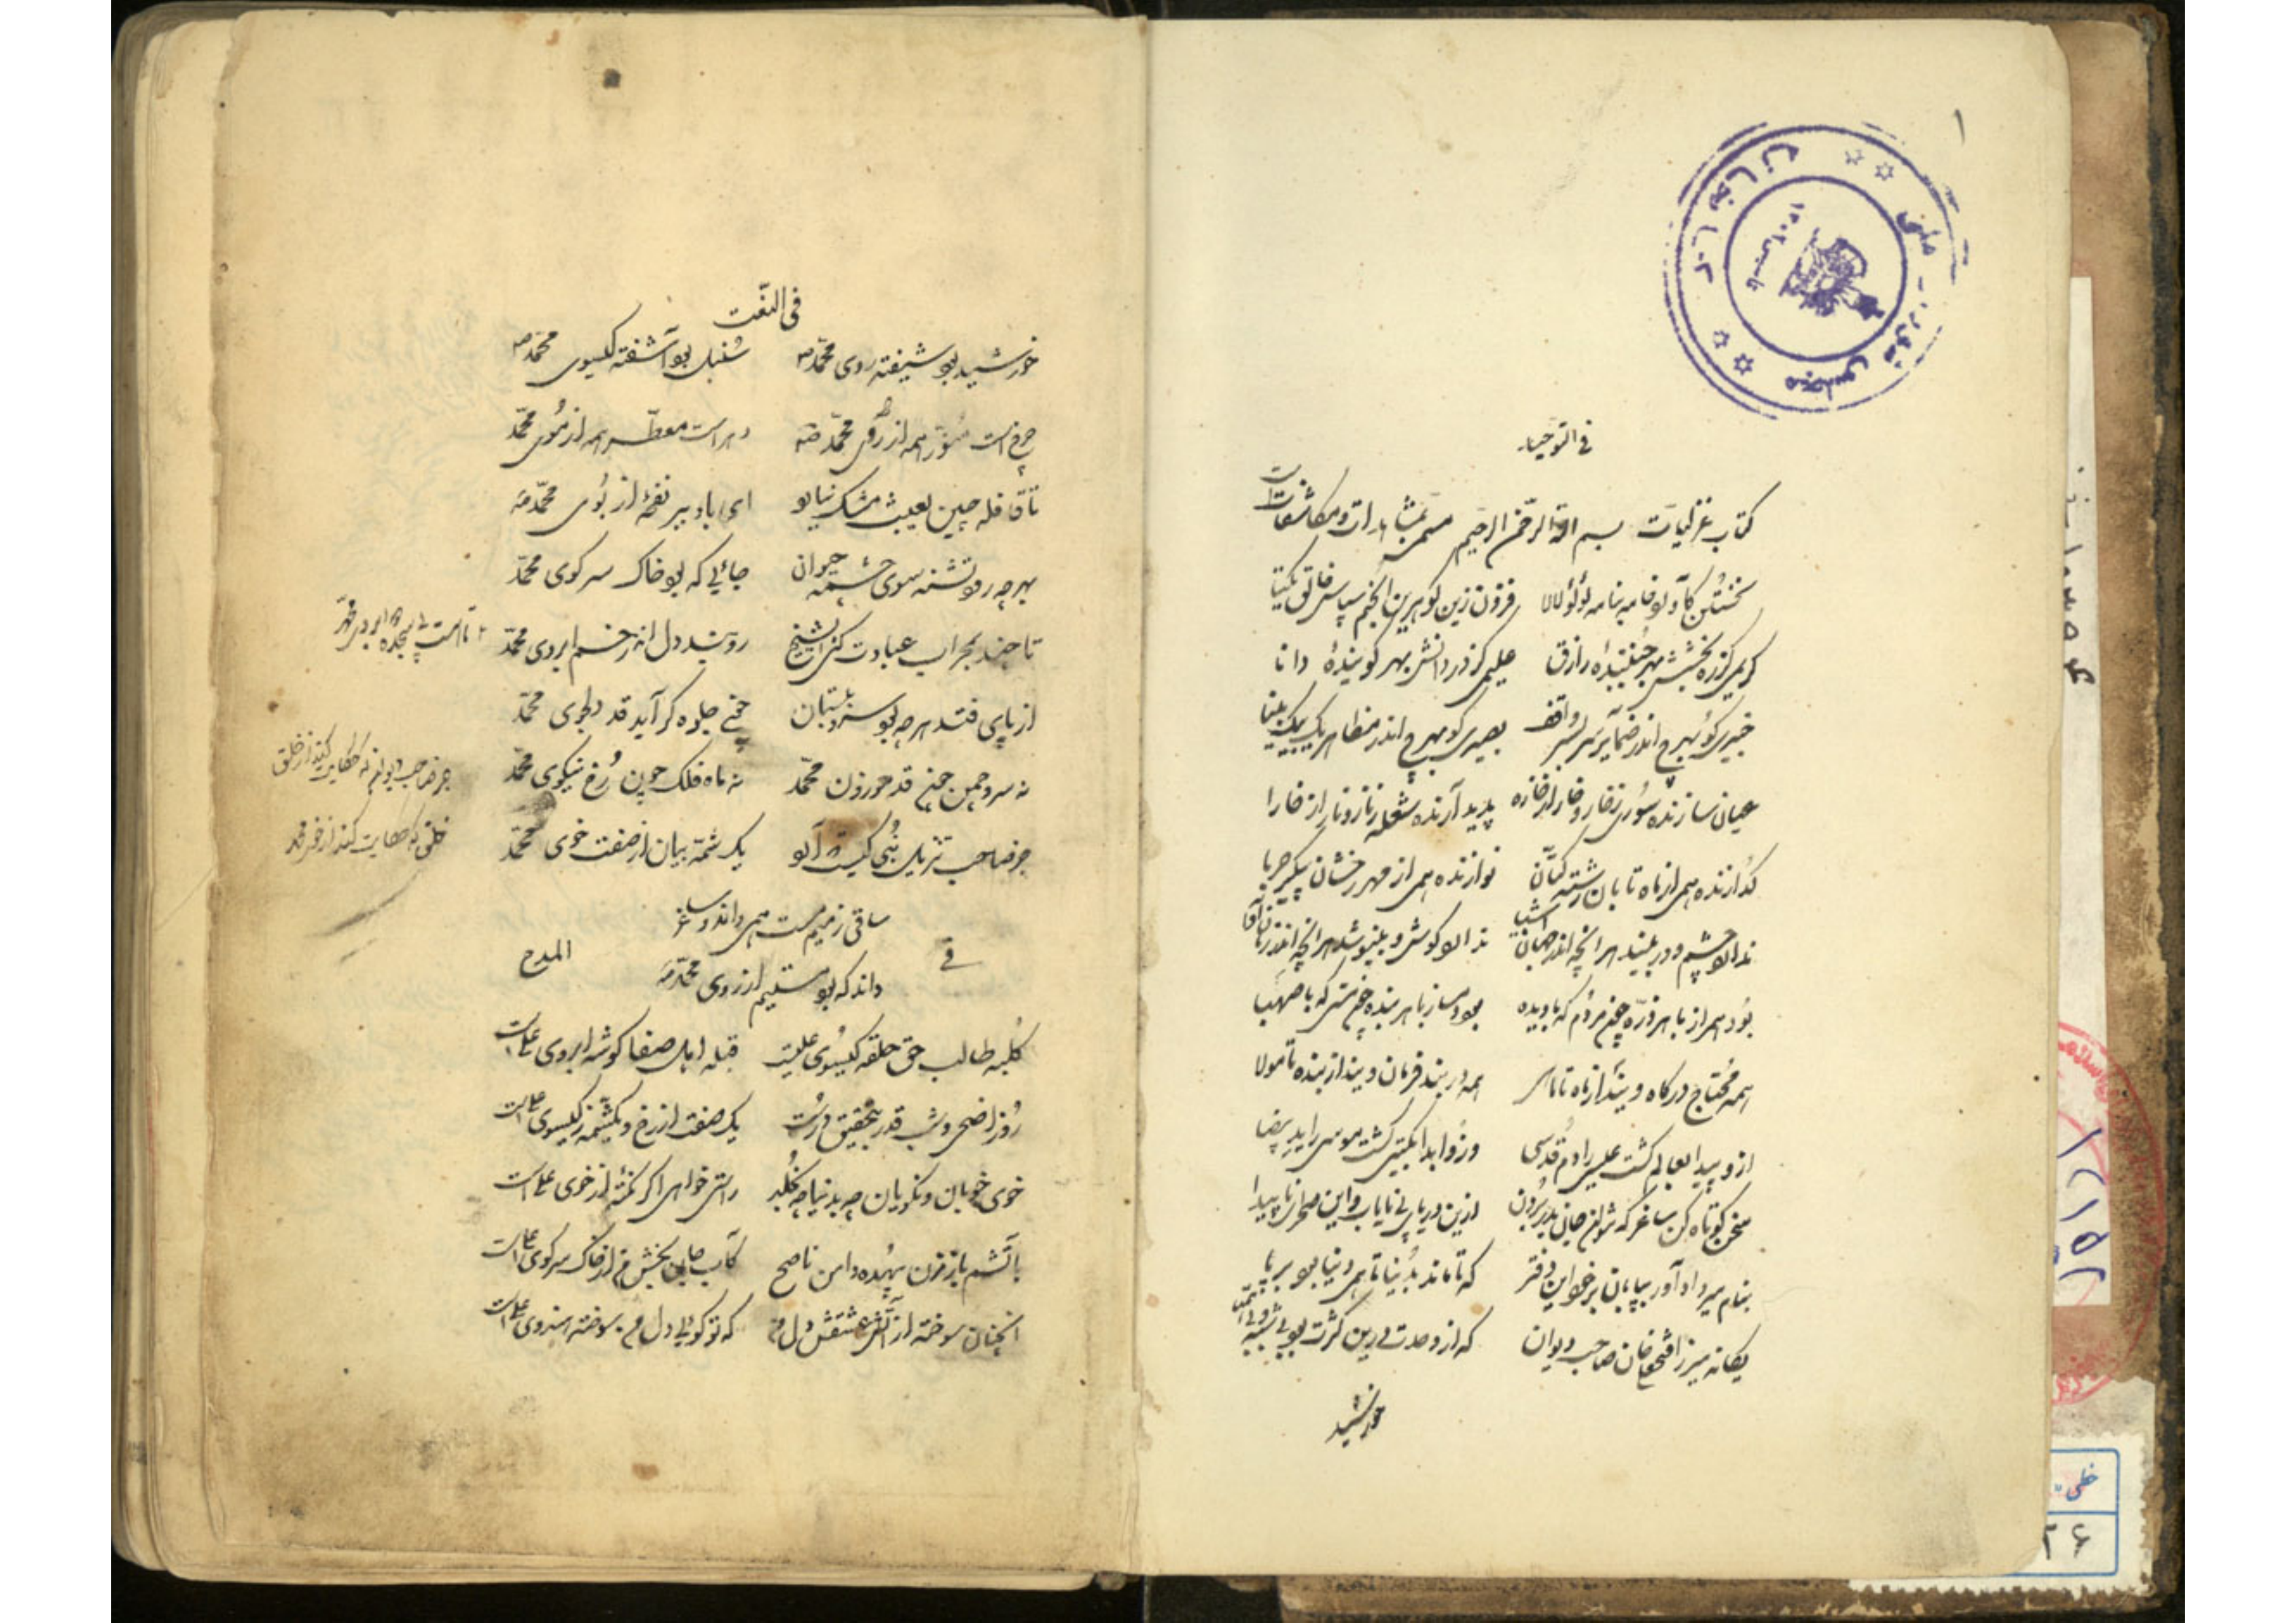 ۱
فی التوحید
کتاب غزلیات بسم الله الرحمن الرحیم مسمی بمشاهدات و مکاشفات
نخستین کآورد خامه بنامه لؤلؤ لالا فزون زین گوهرین انجم سپاس خالق یکتا
کریمی کز ره بخشش بهر جنبنده رازق علیمی کز در دانش بهر گوینده دانا
خبیری کو بهرچ اندر ضمایر سر بسر واقف بصیری کو بهرچ اندر مظاهر یک بیک بینا
عیان سازنده سوری ز خار و خار از خاره پدید آرنده شعله ز نار و نار از خارا
گدازنده همی از ماه تابان رشته کتان نوازنده همی از مهر رخشان پیکر حربا
ندارد چشم و در بیند هر آنچه اندر جهان اشیا ندارد گوش و بنیوشد هر آنچه اندر
بود همراز با هر ذره چون مردم که با دیده بود دمساز با هر بنده چون مستی که با صهبا
همه محتاج درگاه ویند از ماه تا ماهی همه در بند فرمان ویند از بنده تا مولا
ازو پیدا بعالم گشت عیسی را دم قدسی وزو ابدا بگیتی گشت موسی را ید بیضا
سخن کوتاه کن ساغر که نتوان جان بدر بردن ازین دریای بی پایاب و این صحرای ناپیدا
بنام میر داد آور بپایان بر خود این دفتر که تا ماند بدنیا تا همی دنیا بود بر پا
یگانه میرزا فتحعلیخان صاحب دیوان که از وحدت درین کثرت بود بی شبه و بی همتا
خورشید
فی النعت
خورشید بود شیفته روی محمد ص سنبل بود آشفته گیسوی محمد ص
چرخ است منور همه از روی محمد ص دهر است معطر همه از موی محمد
تا قافله چین بعبث مشک نیارد ای باد ببر نفحه از بوی محمد ص
بهر چه رود تشنه سوی چشمه حیوان جائی که بود خاک سر کوی محمد
تا چند بمحراب عبادت کنی ای شیخ رو بند دل اندر خم ابروی محمد
از پای فتد هر چه بود سرو ببستان چون جلوه گر آید قد دلجوی محمد
نه سرو چمن چون قد موزون محمد نه ماه فلک چون رخ نیکوی محمد
جز صاحب تنزیل نبی کیست که آرد یک شمه بیان از صفت خوی محمد
ساقی ز میم مست همی داند و ساغر
داند که بود مستیم از روی محمد ص
فی المدح
کلبه طالب حق حلقه گیسوی علیست قبله اهل صفا گوشه ابروی علی است
روز اضحی و شب قدر بتحقیق درست یک صفت از رخ و یک شمه ز گیسوی علی است
خوی خوبان و نکویان چه بدنیا چه بخلد راستی خواهی اگر نکته از خوی علی است
بآتشم باز مزن بیهده دامن ناصح کآب جان بخش من از خاک سر کوی علی است
آنچنان سوخته از آتش عشقش دل من که تو گوئی دل من سوخته هندوی علی است